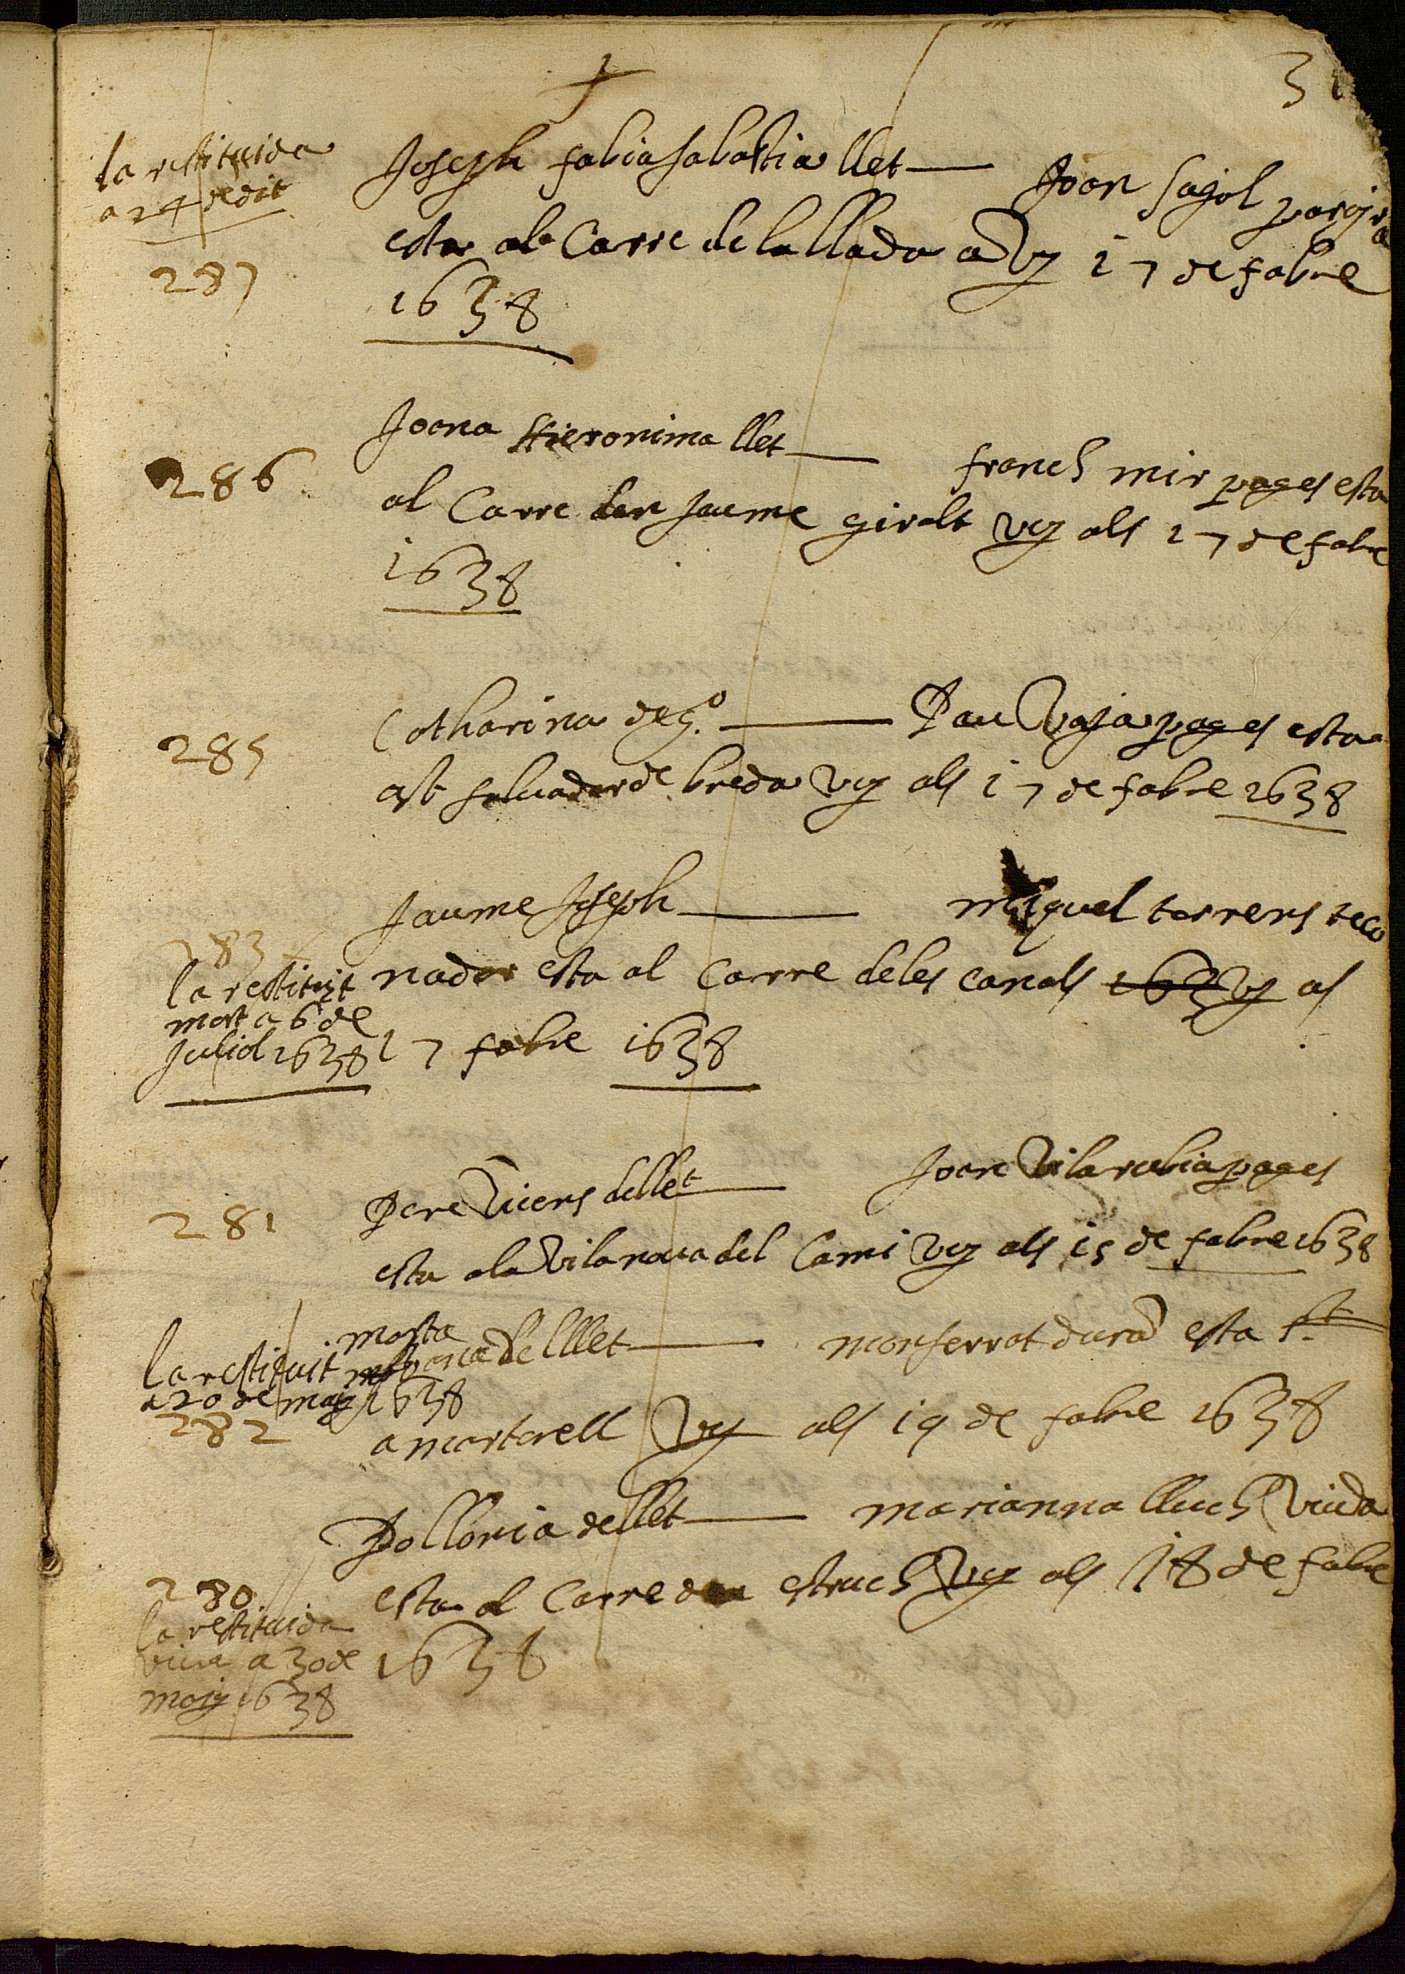 3
la restituida
a 24 de dit
287
Joseph fabia sabastia llet — Joan Sagol
esta al Carre de la llado a vy 17 de fabre
1638
286
Joana Hieronima llet — franch mir pages esta
al Carre den Jaume giralt vy als 17 de fabre
1638
285
Catharina deg.º — Pau Vaja pages esta
a St saluador de breda vy als 17 de fabre 1638
283
la restituit
mort a 6 de
Juliol 1638
Jaume Joseph — miquel torrens teco
nador esta al Carre de les canals vy als
17 fabre 1638
281
Pere Vicens de llet — Joan Vilarubia pages
esta a la Vilanova del Cami vy als 15 de fabre 1638
la restituit morta
a 20 de maig 1638
282
de llet — monserrat dura esta
a martorell vy als 19 de fabre 1638
280
la restituida
viva a 30 de
maig 1638
Pollonia de llet — marianna lluch Viuda
esta al Carre den estruch vy als 18 de fabre
1638